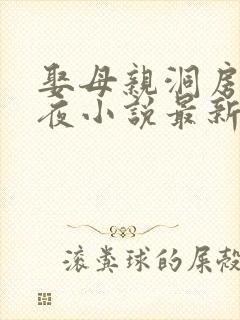 娶母親洞房
夜小説最新
滚粪球的屎殼